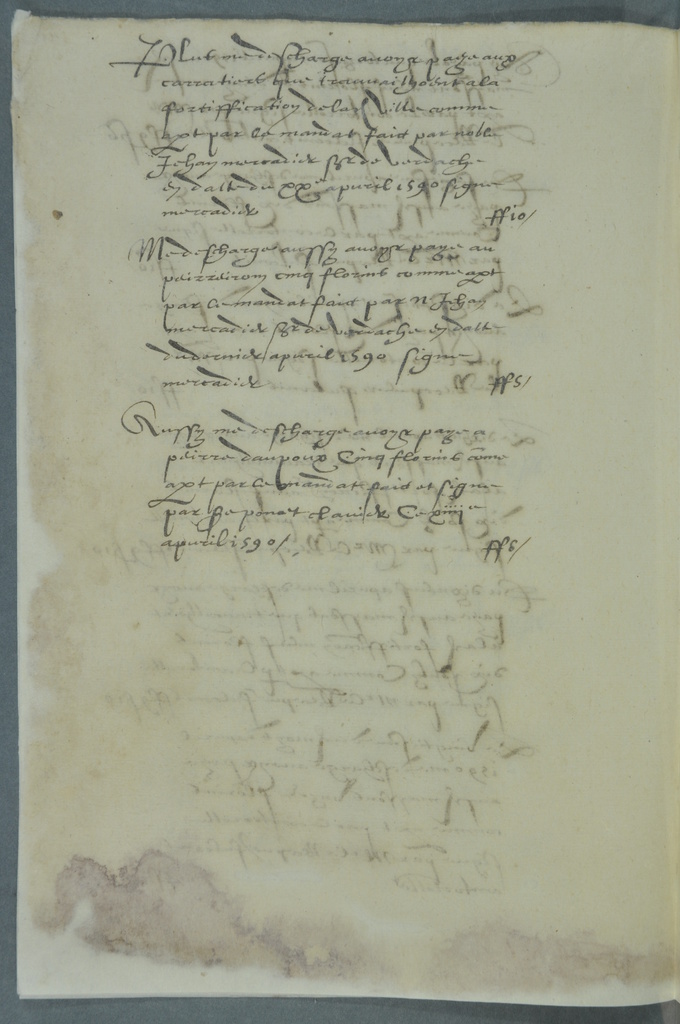 Plus me descharge avoyr paye aux
carratiers que travailhoient a la
fortiffication de la ville comme
apt par le mandat faict par noble
Jehan mercadier Sr de verdache
en datte du xxe apvril 1590 signe
mercadier ff 10/
Me descharge aussy avoyr paye au
peirreirom cinq florins comme apt
par le mandat faict par N Jehan
mercadier Sr de verdache en datte
du dernier apvril 1590 signe
mercadier ff 5/
Aussy me descharge avoyr paye a
peirre daupoux Cinq florins cõme
apt par le mandat faict et signe
par Sre ponet clavier Ce xiiii e
apvril 1590/. ff 5/